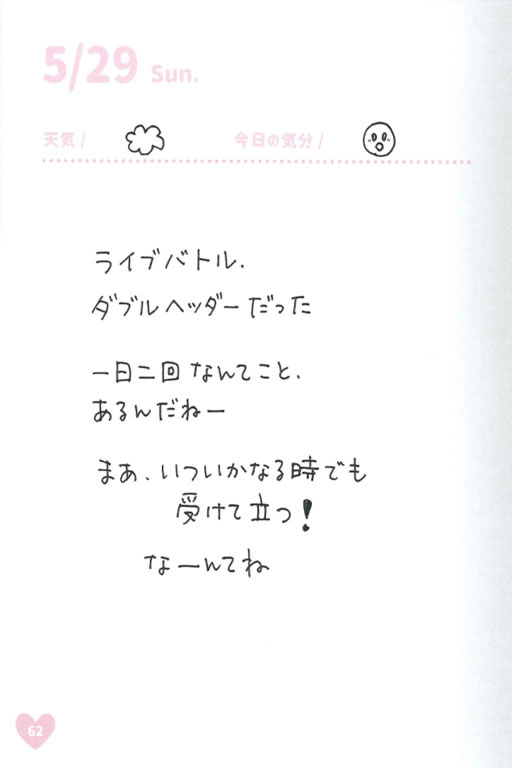 5/29 Sun.
天気 / 今日の気分 /
ライブバトル.
ダブルヘッダーだった
一日二回なんてこと.
あるんだねー
まあ.いついかなる時でも
受けて立つ!
なーんてね
62